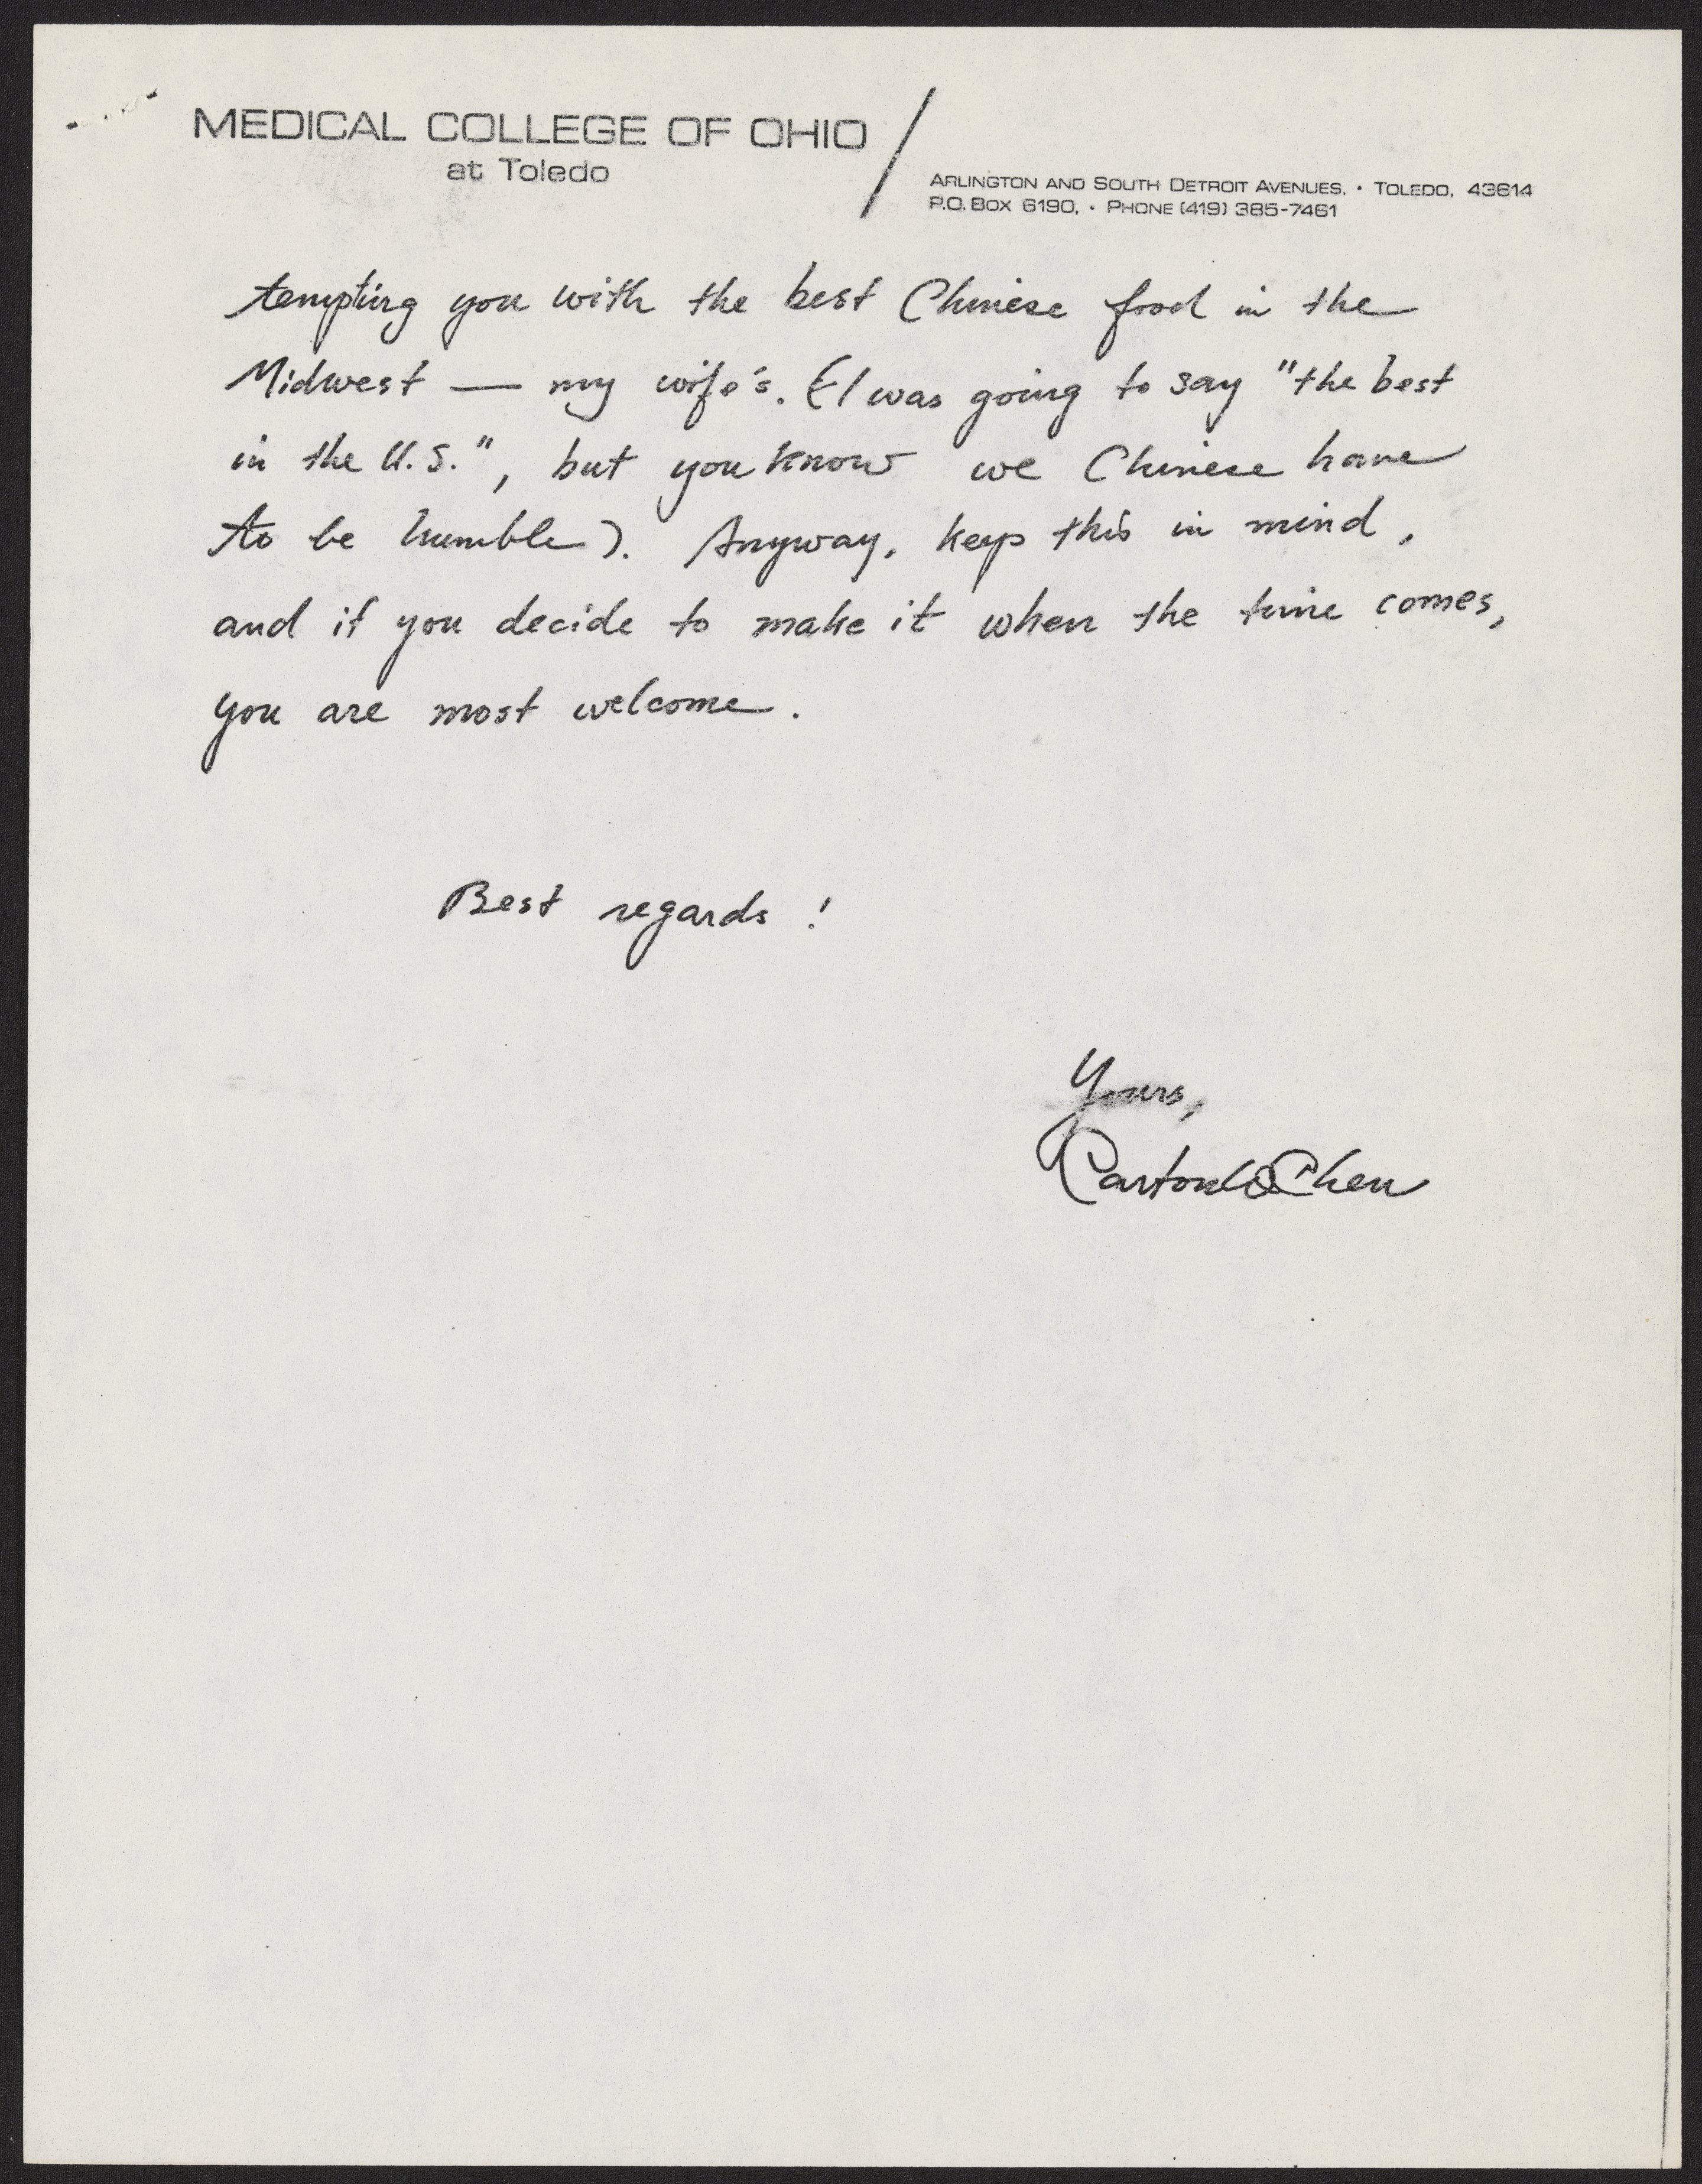 MEDICAL COLLEGE OF OHIO
at Toledo
ARLINGTON AND SOUTH DETROIT AVENUES, • TOLEDO, 43614
P.O. BOX 6190, • PHONE (419) 385-7461
tempting you with the best Chinese food in the
Midwest — my wife's. (I was going to say "the best
in the U.S.", but you know we Chinese have
to be humble). Anyway, keep this in mind,
and if you decide to make it when the time comes,
you are most welcome.
Best regards!
Yours,
Chen